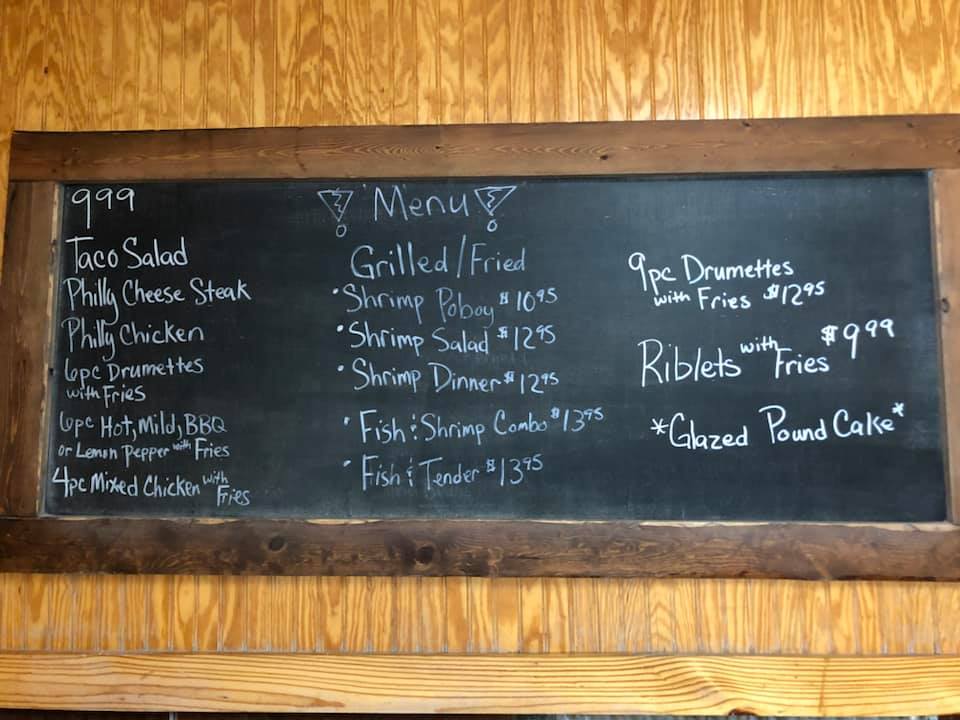 999
Taco Salad
Philly Cheese Steak
Philly Chicken
6pc Drumettes
with Fries
6pc Hot, Mild, BBQ
or Lemon Pepper with Fries
4pc Mixed Chicken with
Fries
Menu
Grilled/Fried
• Shrimp Poboy $10 95
• Shrimp Salad $12 95
• Shrimp Dinner $12 95
• Fish & Shrimp Combo $13 95
• Fish & Tender $13 95
9pc Drumettes
with Fries $12 95
Riblets with Fries $9 99
*Glazed Pound Cake*